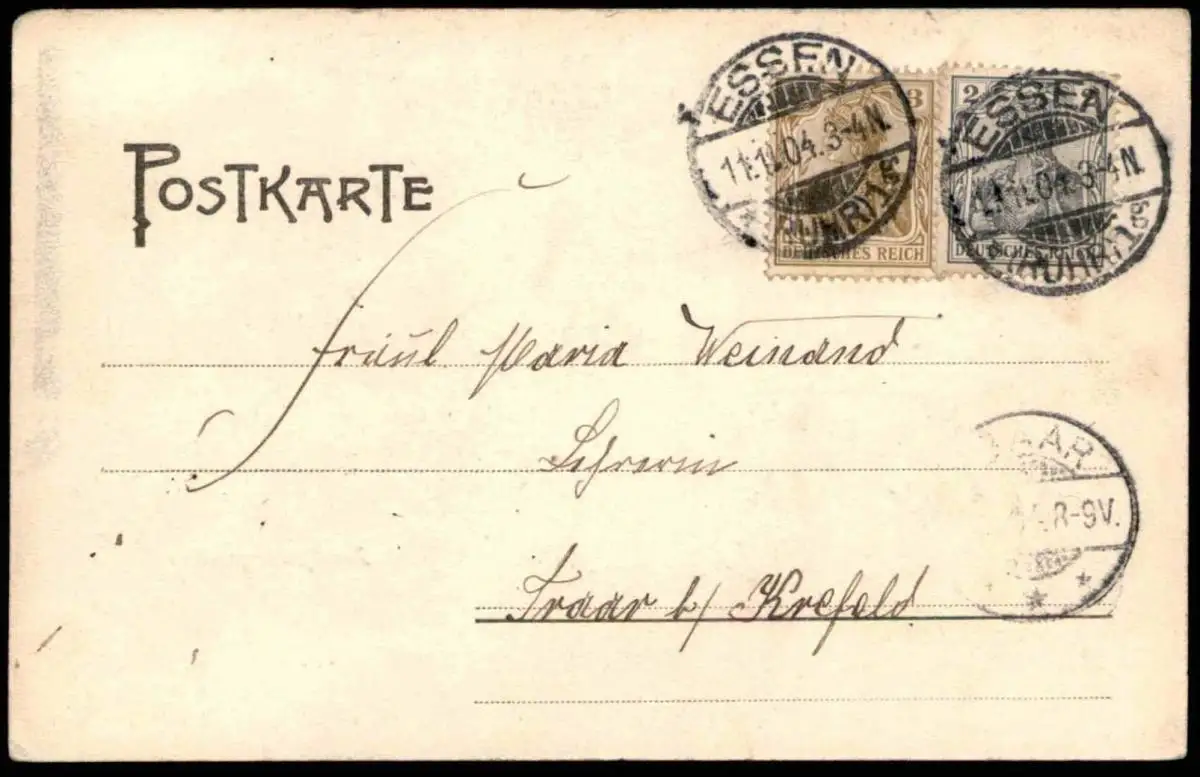 POSTKARTE
3
DEUTSCHES REICH
2
DEUTSCHES REICH
ESSEN
11.11.04. 3-4 N.
(RUHR) 1
ESSEN
11.11.04. 3-4 N.
(RUHR) 1
Fräul Maria Weinand
Lehrerin
Traar b/ Krefeld
TRAAR
8-9V.